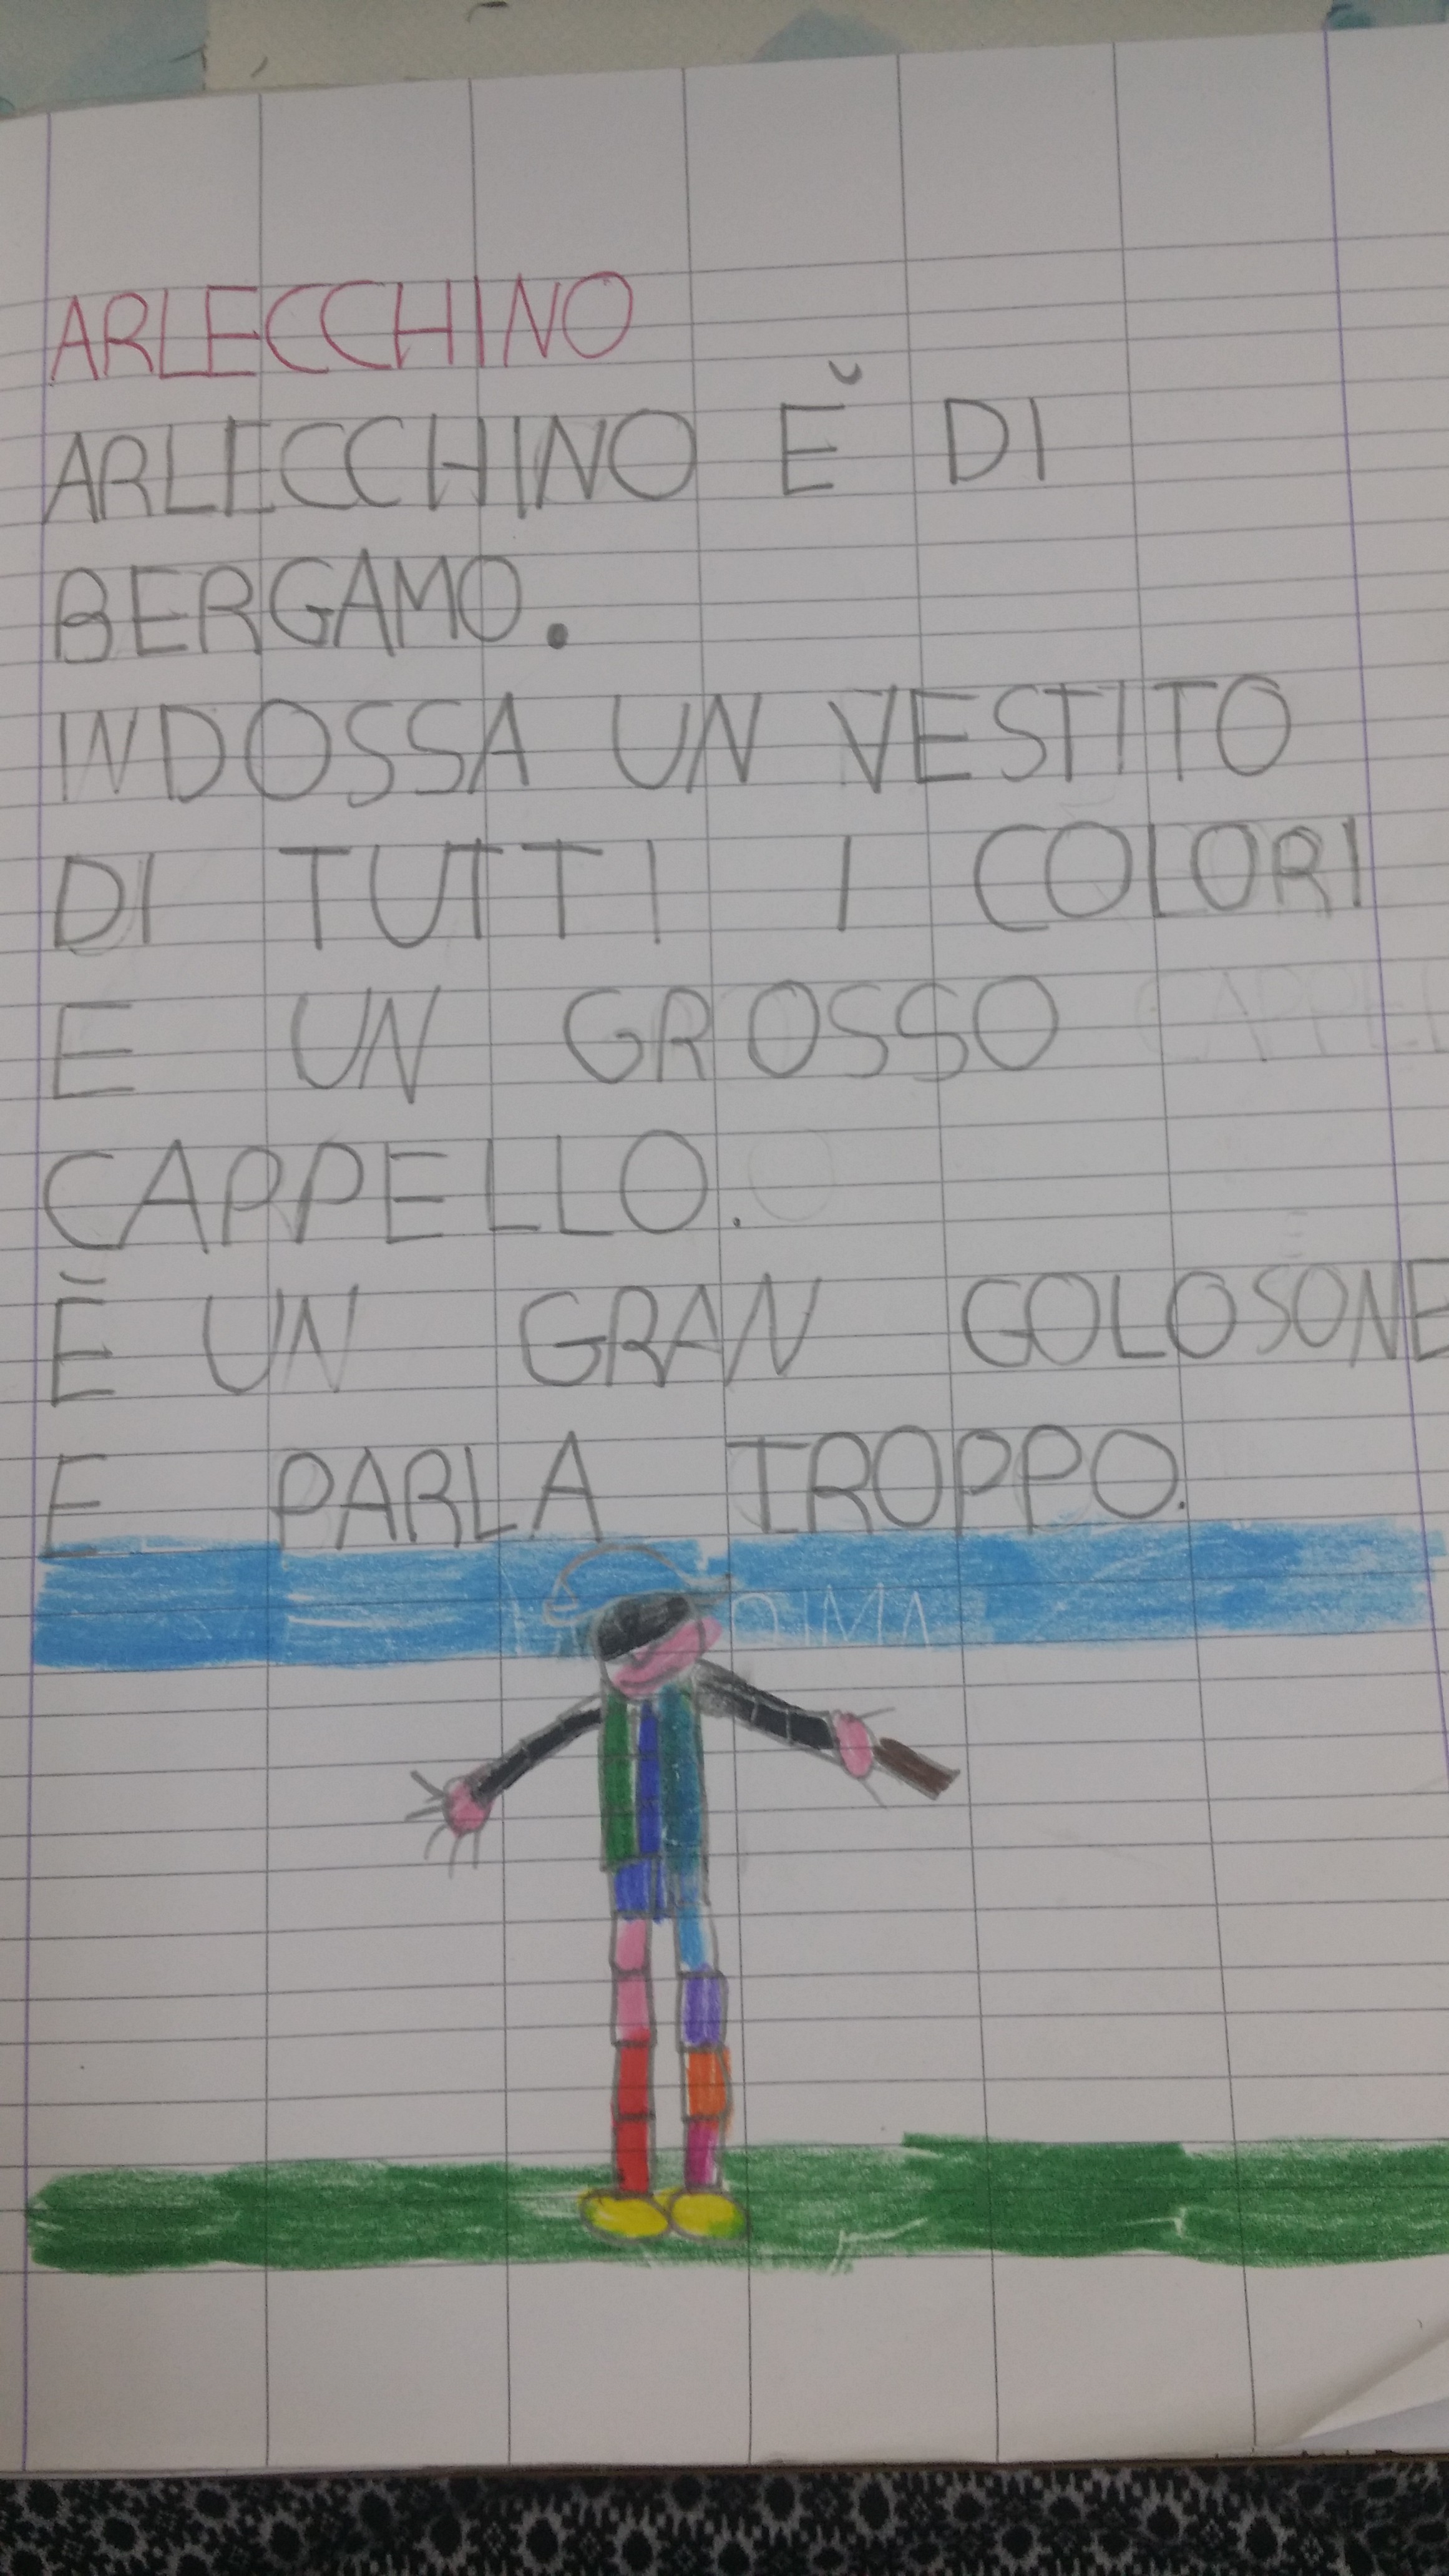 ARLECCHINO
ARLECCHINO È DI
BERGAMO.
INDOSSA UN VESTITO
DI TUTTI I COLORI
E UN GROSSO
CAPPELLO.
È UN GRAN GOLOSONE
E PARLA TROPPO.